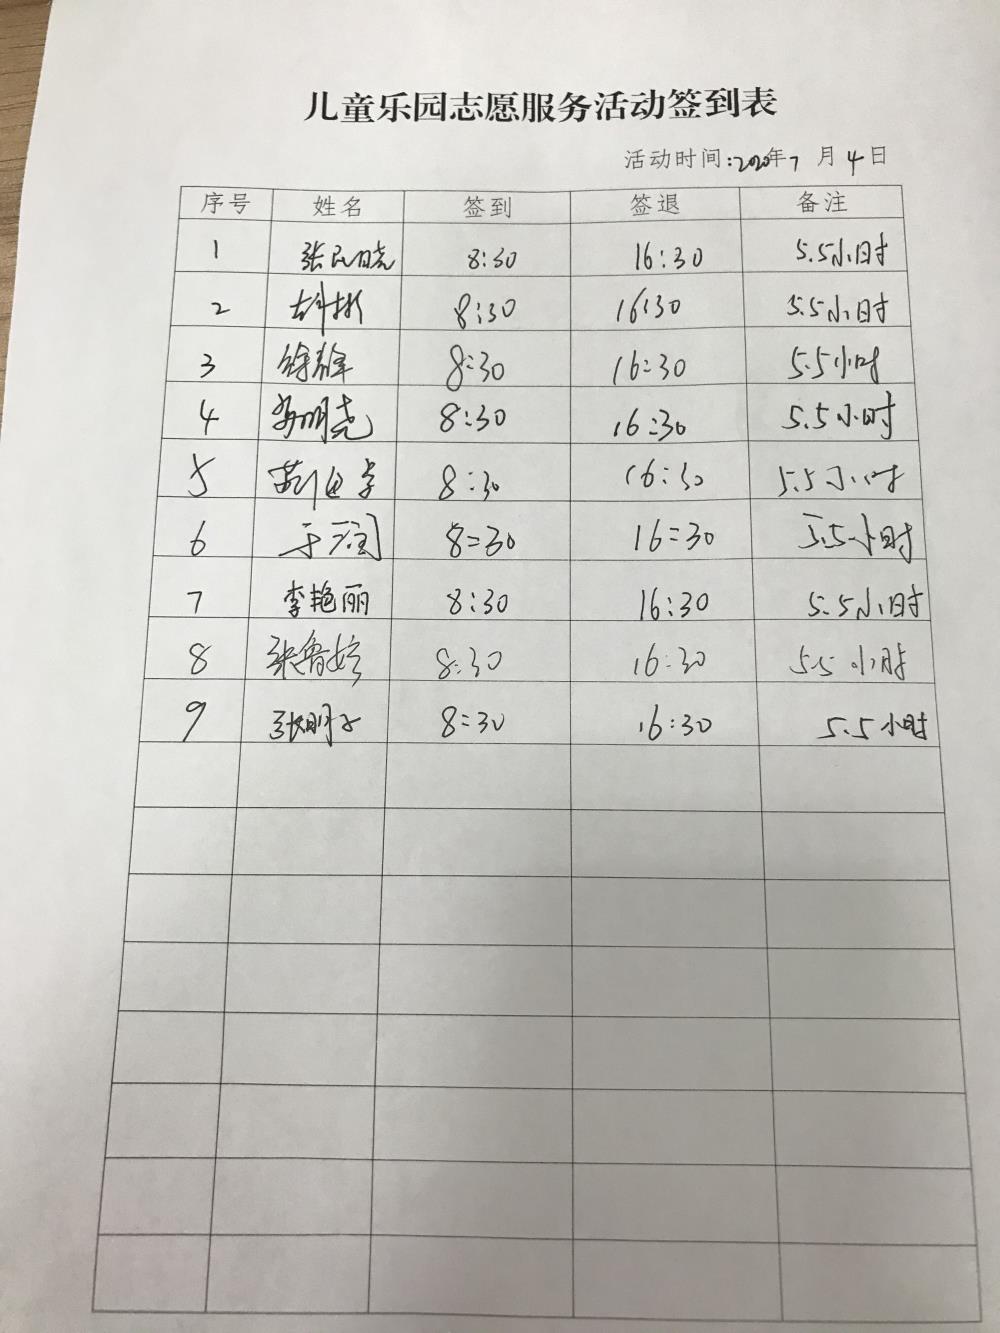 儿童乐园志愿服务活动签到表
活动时间:2020年7月4日
序号 姓名 签到 签退 备注
1 张民晓 8:30 16:30 5.5小时
2 8:30 16:30 5.5小时
3 8:30 16:30 5.5小时
4 8:30 16:30 5.5小时
5 8:30 16:30 5.5小时
6 于润 8:30 16:30 5.5小时
7 李艳丽 8:30 16:30 5.5小时
8 张鲁婷 8:30 16:30 5.5小时
9 8:30 16:30 5.5小时